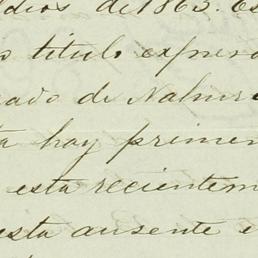 dios de 1863. Es
titulo expres
cado de Natur
hay primer
esta recientem
esta ausente e